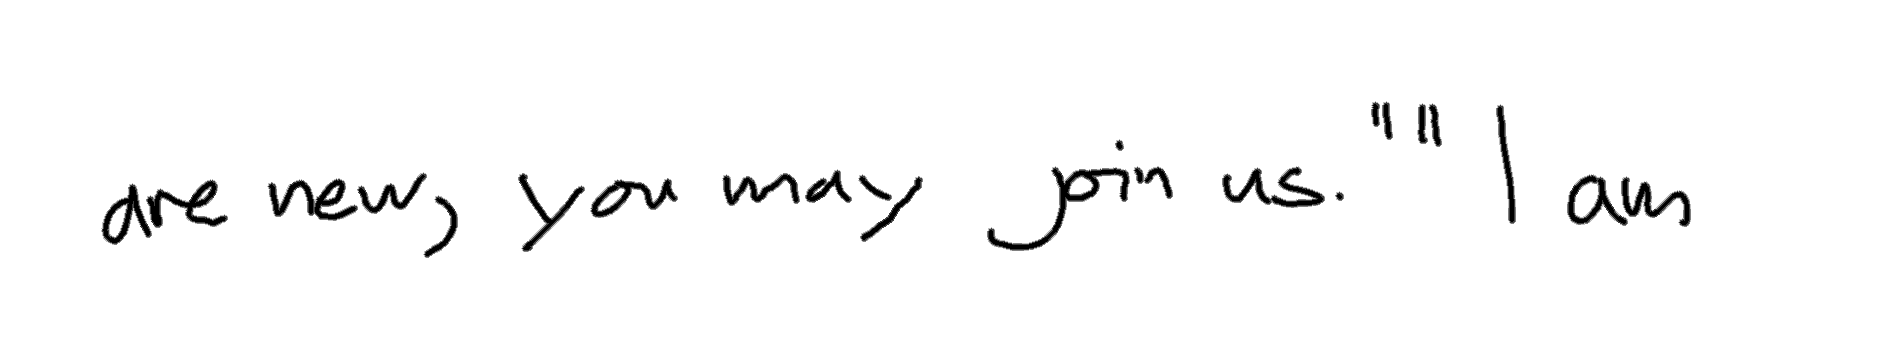 are new, you may join us." "I am